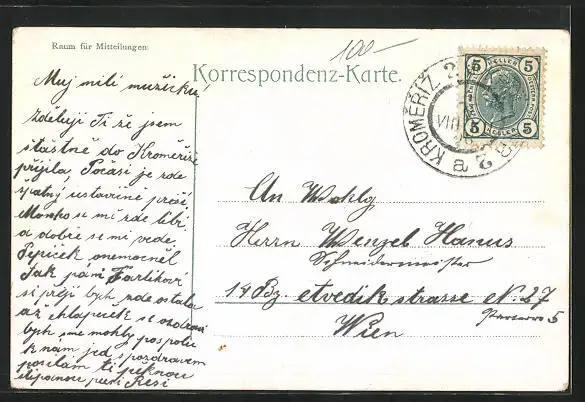 Raum für Mitteilungen:
100-
Korrespondenz-Karte.
Muj milí mužíčku!
zděluji Ti že jsem
šťastně do Kroměříže
přijela, Počasí je zde
špatný ustavičně prší,
Manko se mi zde líbí
a dobře se mi vede.
Pepíček onemocněl
Tak paní
si přejí bych zde ostala
až chlapeček se
bych sme mohly pospolu
k nám jed s pozdravem
posílám ti pěknou
Resi
5 5
HELLER HELLER
5 5
KROMĚŘÍŽ 2
VIII
KREMSIER 2
a
An Wohlg
Herrn Wenzel Hanus
Schneidermeister
14 Bz. etvedik strasse N. 27
Parterre 5
Wien